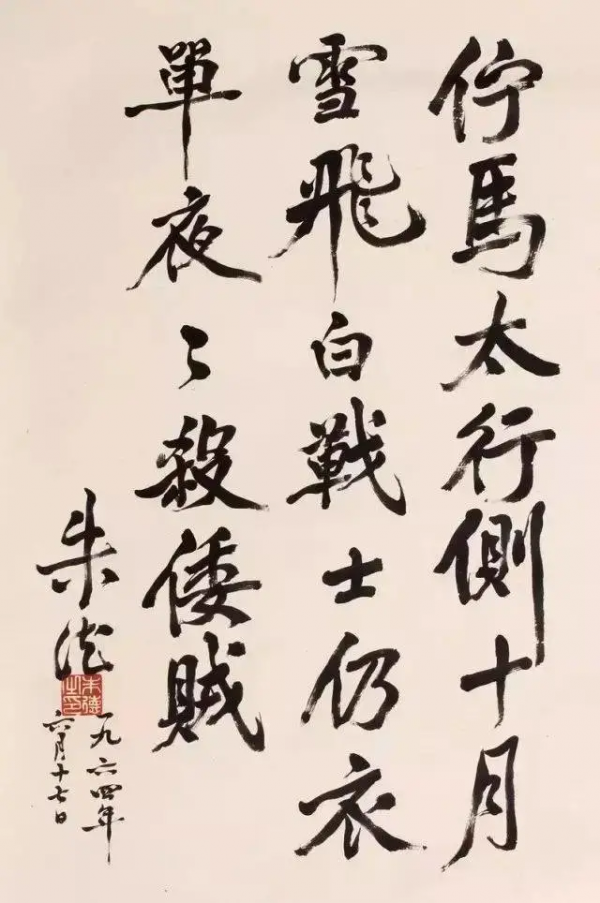 佇馬太行側十月
雪飛白戰士仍衣
單夜々殺倭賊
朱德
一九六四年
六月十七日
朱德之印